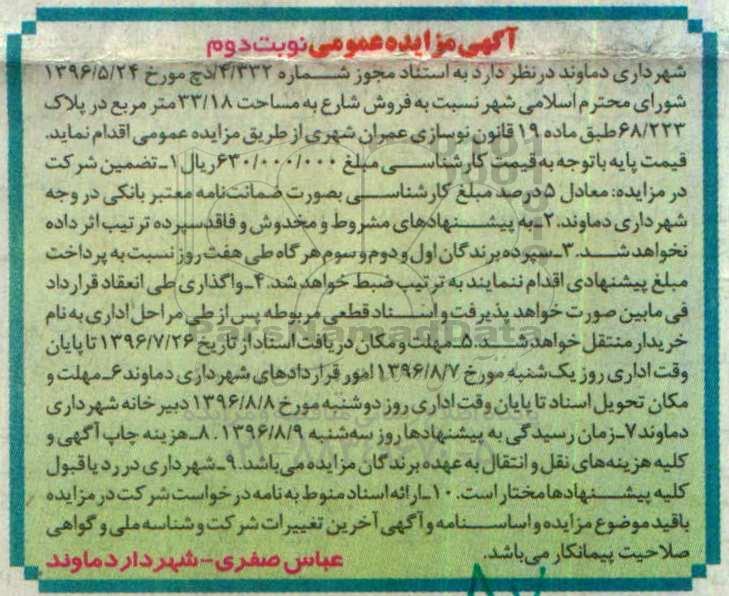 آگهی مزایده عمومی نوبت دوم
شهرداری دماوند در نظر دارد به استناد مجوز شماره ۴/۳۳۲/دچ مورخ ۱۳۹۶/۵/۲۴
شورای محترم اسلامی شهر نسبت به فروش شارع به مساحت ۳۳/۱۸ متر مربع در پلاک
۶۸/۲۲۳ طبق ماده ۱۹ قانون نوسازی عمران شهری از طریق مزایده عمومی اقدام نماید.
قیمت پایه باتوجه به قیمت کارشناسی مبلغ ۶۳۰/۰۰۰/۰۰۰ ریال ۱ـ تضمین شرکت
در مزایده: معادل ۵ درصد مبلغ کارشناسی بصورت ضمانت‌نامه معتبر بانکی در وجه
شهرداری دماوند. ۲ـ به پیشنهادهای مشروط و مخدوش و فاقد سپرده ترتیب اثر داده
نخواهد شد. ۳ـ سپرده برندگان اول و دوم و سوم هرگاه طی هفت روز نسبت به پرداخت
مبلغ پیشنهادی اقدام ننمایند به ترتیب ضبط خواهد شد. ۴ـ واگذاری طی انعقاد قرارداد
فی مابین صورت خواهد پذیرفت و اسناد قطعی مربوطه پس از طی مراحل اداری به نام
خریدار منتقل خواهد شد. ۵ـ مهلت و مکان دریافت اسناد از تاریخ ۱۳۹۶/۷/۲۶ تا پایان
وقت اداری روز یک‌شنبه مورخ ۱۳۹۶/۸/۷ امور قراردادهای شهرداری دماوند ۶ـ مهلت و
مکان تحویل اسناد تا پایان وقت اداری روز دوشنبه مورخ ۱۳۹۶/۸/۸ دبیرخانه شهرداری
دماوند ۷ـ زمان رسیدگی به پیشنهادها روز سه‌شنبه ۱۳۹۶/۸/۹. ۸ـ هزینه چاپ آگهی و
کلیه هزینه‌های نقل و انتقال به عهده برندگان مزایده می‌باشد. ۹ـ شهرداری در رد یا قبول
کلیه پیشنهادها مختار است. ۱۰ـ ارائه اسناد منوط به نامه درخواست شرکت در مزایده
باقید موضوع مزایده و اساسنامه و آگهی آخرین تغییرات شرکت و شناسه ملی و گواهی
صلاحیت پیمانکار می‌باشد.
عباس صفری - شهردار دماوند
ParsNamadData